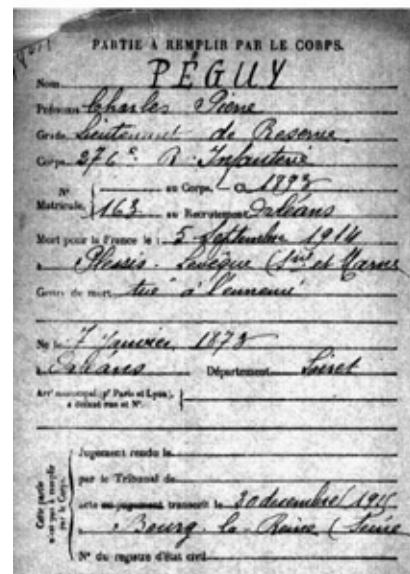 PARTIE À REMPLIR PAR LE CORPS.
Nom PÉGUY
Prénoms Charles Pierre
Grade Lieutenant de Reserve
Corps 276e R. Infanterie
N° Matricule. au Corps. Cl 1893
163 au Recrutement Orléans
Mort pour la France le 5 Septembre 1914
à Plessis-Levêque (Sne et Marne
Genre de mort tué à l'ennemi
Né le 7 Janvier 1873
à Orléans Département Loiret
Arrt municipal (pr Paris et Lyon), à défaut rue et N°.
Cette partie n'est pas à remplir par le Corps.
Jugement rendu le
par le Tribunal de
acte ou jugement transcrit le 30 decembre 1915
à Bourg-la-Reine (Seine
N° du registre d'état civil